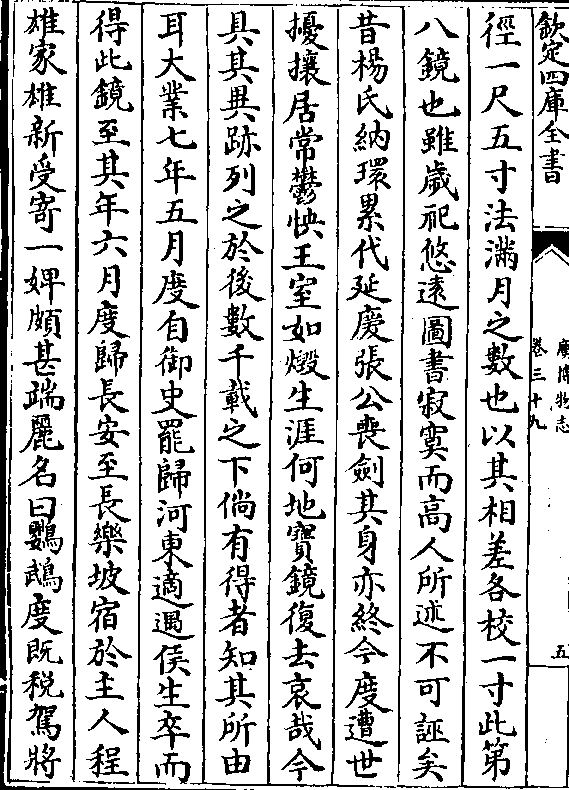 欽定四庫全書
廣博物志
卷三十九
五
徑一尺五寸法滿月之數也以其相差各校一寸此第
八鏡也雖歲祀悠遠圖書寂寞而高人所述不可誣矣
昔楊氏納環累代延慶張公喪劍其身亦終今度遭世
擾攘居常鬱怏王室如燬生涯何地寶鏡復去哀哉今
具其異跡列之於後數千載之下倘有得者知其所由
耳大業七年五月度自御史罷歸河東適遇侯生卒而
得此鏡至其年六月度歸長安至長樂坡宿於主人程
雄家雄新受寄一婢頗甚端麗名曰鸚鵡度既稅駕將